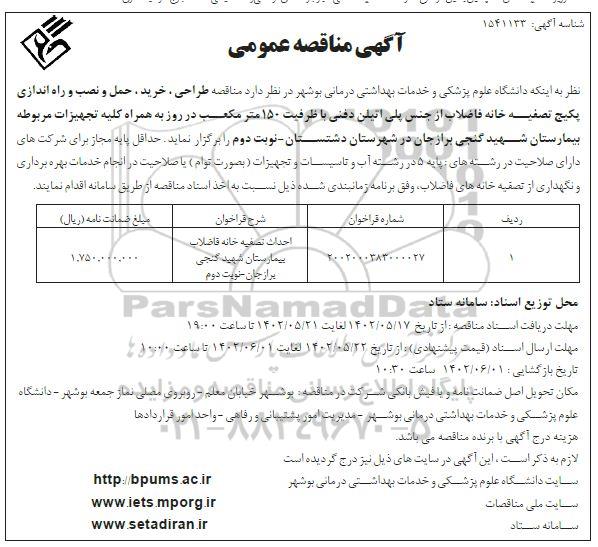 شناسه آگهی: ۱۵۴۱۱۳۳
آگهی مناقصه عمومی
نظر به اینکه دانشگاه علوم پزشکی و خدمات بهداشتی درمانی بوشهر در نظر دارد مناقصه طراحی ، خرید ، حمل و نصب و راه اندازی
پکیج تصفیه خانه فاضلاب از جنس پلی اتیلن دفنی با ظرفیت ۱۵۰ متر مکعب در روز به همراه کلیه تجهیزات مربوطه
بیمارستان شهید گنجی برازجان در شهرستان دشتستان-نوبت دوم را برگزار نماید. حداقل پایه مجاز برای شرکت های
دارای صلاحیت در رشته های : پایه ۵ در رشته آب و تاسیسات و تجهیزات (بصورت توام ) یا صلاحیت در انجام خدمات بهره برداری
و نگهداری از تصفیه خانه های فاضلاب، وفق برنامه زمانبندی شده ذیل نسبت به اخذ اسناد مناقصه از طریق سامانه اقدام نمایند.
ردیف شماره فراخوان شرح فراخوان مبلغ ضمانت نامه (ریال)
۱ ۲۰۰۲۰۰۰۳۸۳۰۰۰۰۲۷ احداث تصفیه خانه فاضلاب بیمارستان شهید گنجی برازجان-نوبت دوم ۱.۷۵۰.۰۰۰.۰۰۰
محل توزیع اسناد: سامانه ستاد
مهلت دریافت اسناد مناقصه : از تاریخ ۱۴۰۲/۰۵/۱۷ لغایت ۱۴۰۲/۰۵/۲۱ تا ساعت ۱۹:۰۰
مهلت ارسال اسناد (قیمت پیشنهادی) : از تاریخ ۱۴۰۲/۰۵/۲۲ لغایت ۱۴۰۲/۰۶/۰۱ تا ساعت ۱۰:۰۰
تاریخ بازگشایی : ۱۴۰۲/۰۶/۰۱ ساعت ۱۰:۳۰
مکان تحویل اصل ضمانت نامه و یا فیش بانکی شرکت در مناقصه : بوشهر خیابان معلم -روبروی مصلی نماز جمعه بوشهر -دانشگاه
علوم پزشکی و خدمات بهداشتی درمانی بوشهر - مدیریت امور پشتیبانی و رفاهی -واحد امور قراردادها
هزینه درج آگهی با برنده مناقصه می باشد.
لازم به ذکر است ، این آگهی در سایت های ذیل نیز درج گردیده است
سایت دانشگاه علوم پزشکی و خدمات بهداشتی درمانی بوشهر http://bpums.ac.ir
سایت ملی مناقصات www.iets.mporg.ir
سامانه ستاد www.setadiran.ir
ParsNamadData
۰۲۱-۸۸۳۴۹۶۷۰-۵